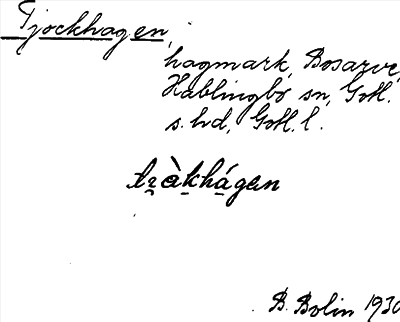 Tjockhagen,
hagmark, Bosarve,
Hablingbo sn, Gotl.
s. hd, Gotl. l.
B. Bolin 1930